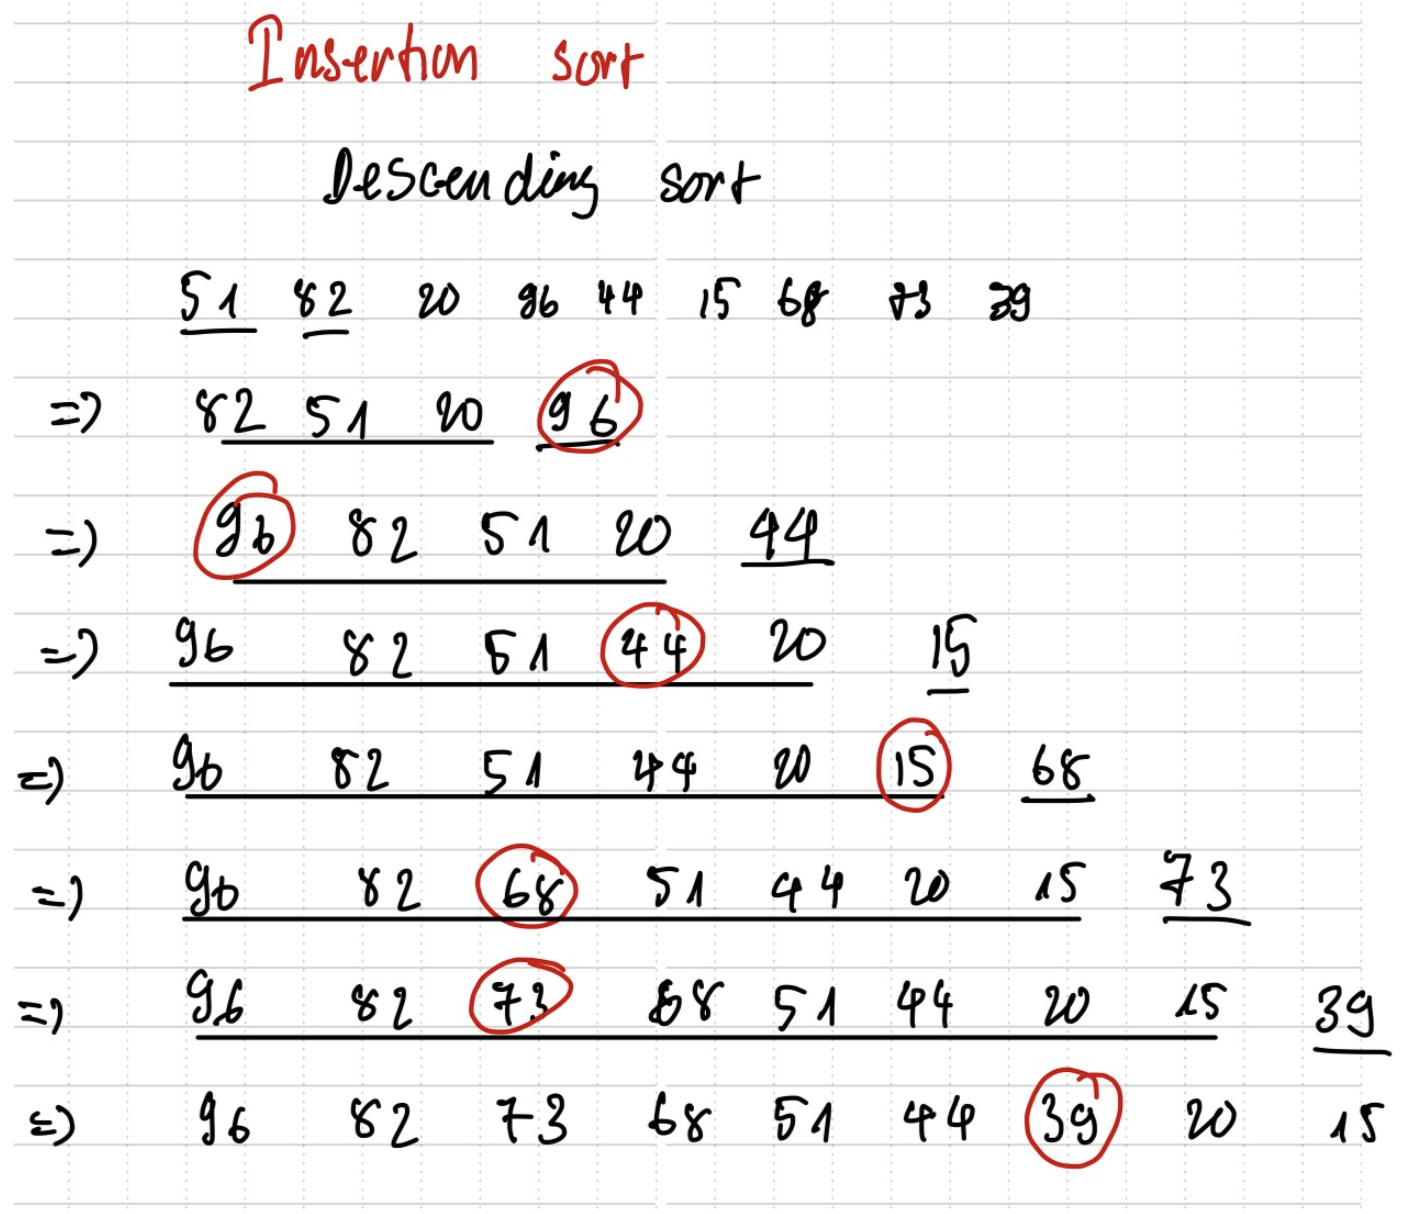 Insertion sort
Descending sort
51 82 20 96 44 15 68 73 39
=> 82 51 20 96
=> 96 82 51 20 44
=> 96 82 51 44 20 15
=> 96 82 51 44 20 15 68
=> 96 82 68 51 44 20 15 73
=> 96 82 73 68 51 44 20 15 39
=> 96 82 73 68 51 44 39 20 15